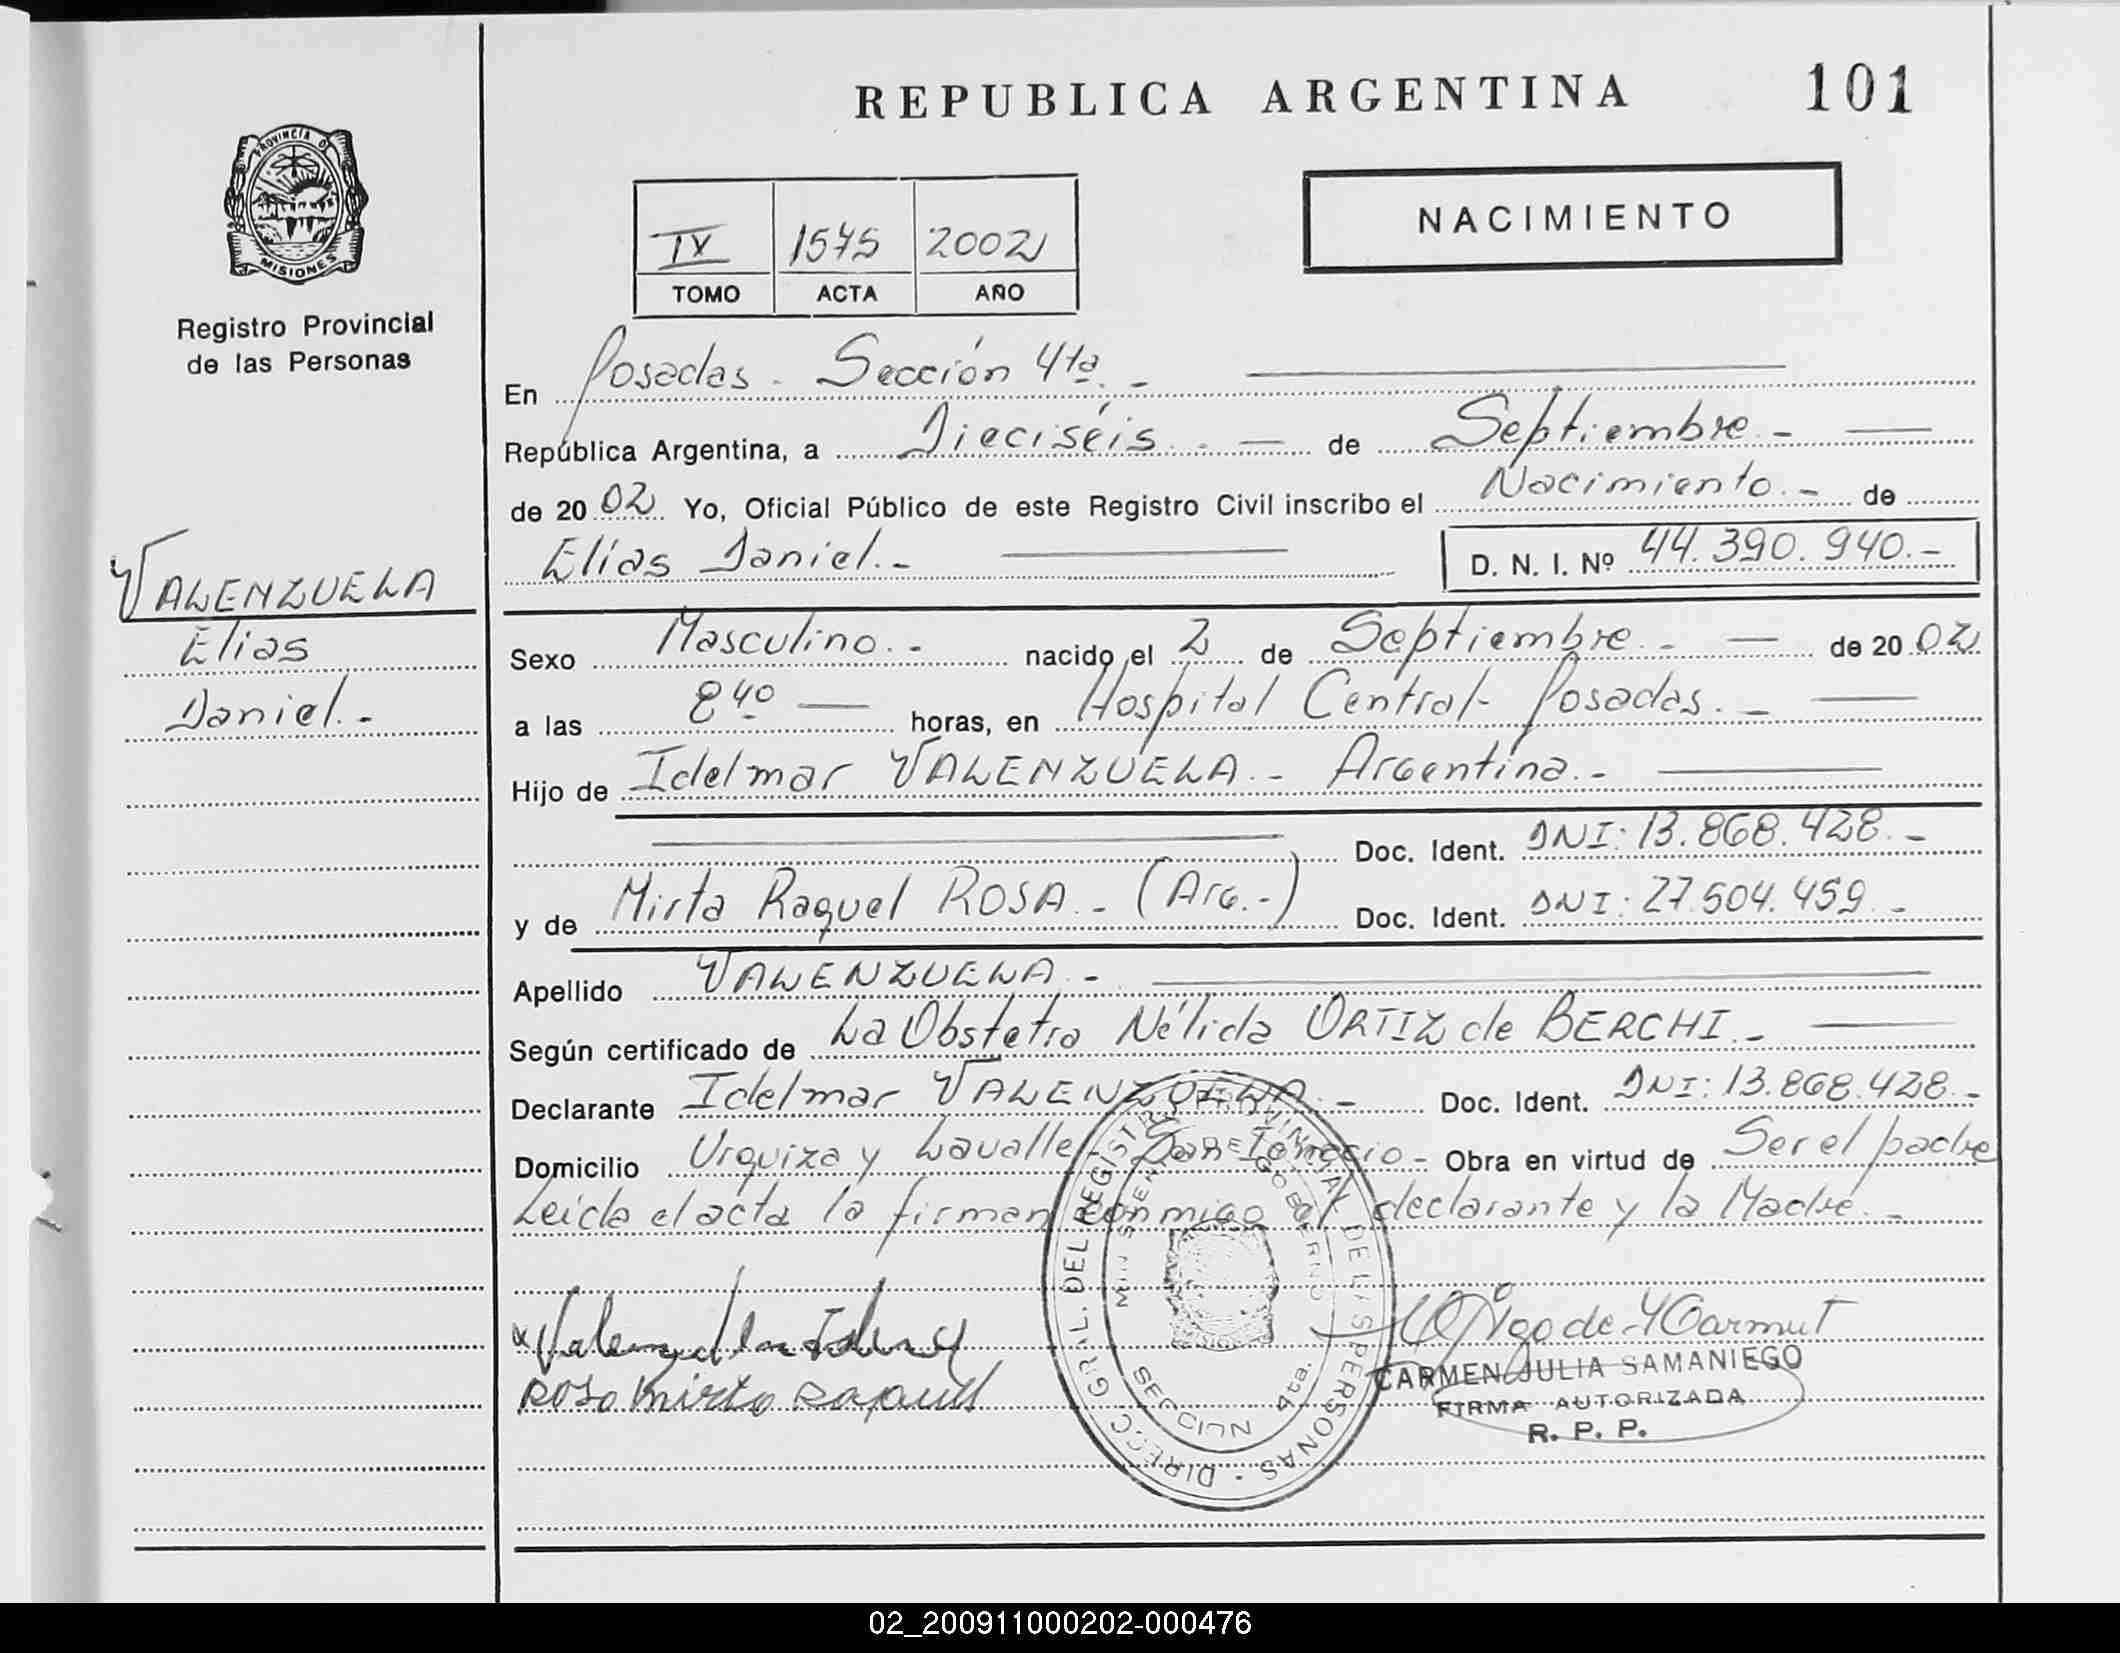 REPUBLICA ARGENTINA
101
PROVINCIA DE
MISIONES
Registro Provincial
de las Personas
IV 1575 2002
TOMO ACTA AÑO
NACIMIENTO
En Posadas - Sección 4ta. -
República Argentina, a Dieciséis. - de Septiembre -
de 2002 Yo, Oficial Público de este Registro Civil inscribo el Nacimiento. - de
Elías Daniel. - D. N. I. Nº 44.390.940.-
VALENZUELA
Elías
Daniel. -
Sexo Masculino. - nacido el 2 de Septiembre. - de 2002
a las 8 40 horas, en Hospital Central - Posadas. -
Hijo de Idelmar VALENZUELA. - Argentina. -
Doc. Ident. DNI: 13.868.428. -
y de Mirta Raquel ROSA. - (Arg. -) Doc. Ident. DNI: 27.504.459. -
Apellido VALENZUELA. -
Según certificado de La Obstetra Nélida ORTIZ de BERCHI. -
Declarante Idelmar VALENZUELA. - Doc. Ident. DNI: 13.868.428. -
Domicilio Urquiza y Lavalle - San Ignacio - Obra en virtud de Ser el padre
Leída el acta la firman conmigo el declarante y la Madre. -
Rosa Mirta Raquel
DIRECC. GRAL. DEL REGISTRO PROVINCIAL DE LAS PERSONAS
MINISTERIO DE GOBIERNO
SECCION 4ta.
CARMEN JULIA SAMANIEGO
FIRMA AUTORIZADA
R. P. P.
02_200911000202-000476